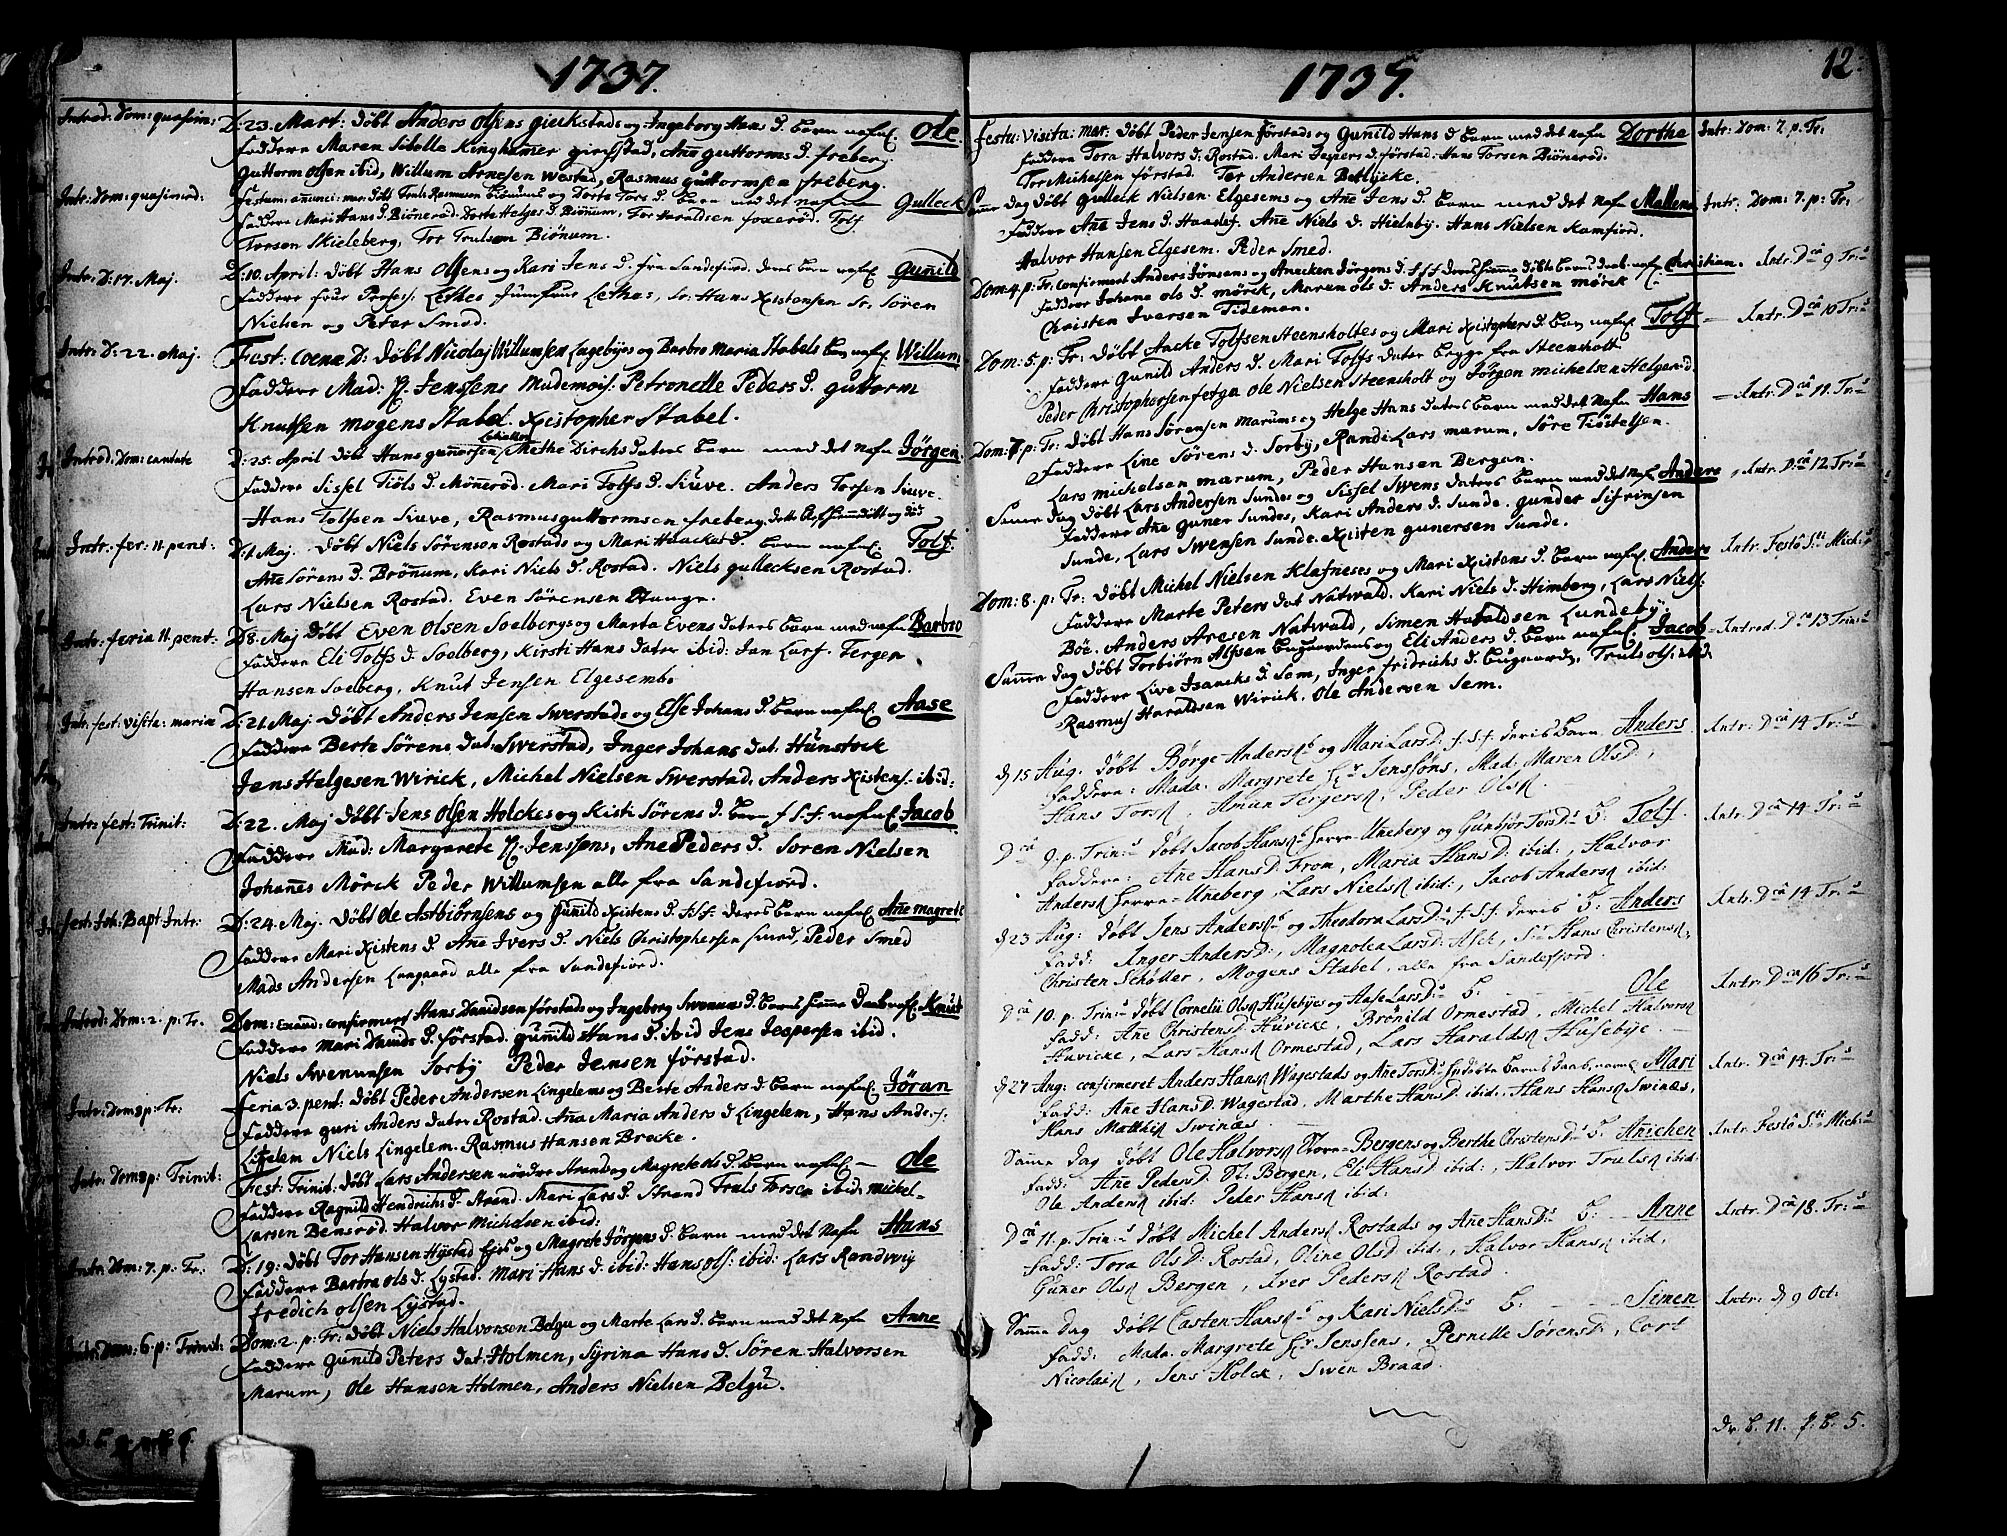 1737.
Introd: Dom: quasim: D: 23. Mart: döbt Anders Olsens gierkstads og Ingeborg Hans d. barn nafnl. Ole.
Faddere Maren Sibelle Kinghammer gierkstad, Ane guttorms d. freberg.
Guttorm Olsen ibid, Willum Arnesen Westad, Rasmus guttormsen freberg.
Intr: Dom: quasimod: Festum: annunci: mar: döbt Truls Rasmusen Biönums og Dorte Tors d. barn med det nafn Gulleck
Faddere Mari Hans d. Biönerød. Dorte Helges d. Biönum, Tor Haraldsen foxerød. Tolf
Torsen Skieleberg, Tor Trulsen Biönum.
Intr: D: 17. Maj. D: 10. April: döbt Hans Olsens og Kari Jens d. fra Sandefiord. deres barn nafnl. Gunild
Faddere frue Profess. Lethes Jumfrue Lethes, Sr. Hans Xistensen Sr. Sören
Nielsen og Peter Smed.
Intr: D: 22. Maj. Fest: Coenæ D: döbt Nicolaj Willumsen Engebyes og Barbro Maria Stabels barn nafnl. Willum
Faddere Mad: H. Jenssens Mademois: Petronelle Peders d. guttorm
Knutsen Mogens Stabel. Xistopher Stabel.
Introd: Dom: cantate D: 25. April döbt Hans gunnersen Methe Dirchs daters barn med det nafn Jörgen.
Faddere Sissel Tiöls d. Mönnerød. Mari Tolfs d. Siuve. Anders Torsen Siuve.
Hans Tolfsen Siuve, Rasmus guttormsen freberg.
Intr: fer: 11 pent: D: 1 Maj. döbt Niels Sörensen Rostads og Mari Haackes d. barn nafnl. Tolf.
Ane Sörens d. Brönnum, Kari Niels d. Rostad. Niels gullecksen Rostad.
Lars Nielsen Rostad. Even Sörensen Hauge.
Intr: feria 11 pent: D: 8. Maj döbt Even Olsen Soelbergs og Marta Evens daters barn med nafn Barbro
Faddere Eli Tolfs d. Soelberg, Kirsti Hans dater ibid. Jan Larf. Terger
Hansen Soelberg, Knut Jensen Elgesem.
Intr: fest: visita: mariæ D: 21 Maj döbt Anders Jensen Swerstads og Else Johans d. barn nafnl. Aase
Faddere Berte Sörens dat: Swerstad, Inger Johans dat: Hunstock
Jens Helgesen Wirick, Michel Nielsen Swerstad, Anders Xistens. ibid:
Intr: fest: Trinit: D: 22. Maj döbt Jens Olsen Holckes og Kisti Sörens d. barn f. S.f. nafnl. Jacob
Faddere Mad: Margarete H. Jenssens, Ane Peders d. Soren Nielsen
Johannes Mörck Peder Willumsen alle fra Sandefiord.
fest: Joh: Bapt Intr: D: 24. Maj. döbt Ole Astbiörnsens og Gunild Xistens d. f.S.f. deres barn nafnl. Ane magrete
Faddere Mari Xistens d. Ane Ivers d. Niels Christophersen Smed, Peder Smed
Mads Andersen Langaard alle fra Sandefiord.
Introd: Dom: 2. p: Tr. Dom: Exaud: confirmert Hans Davidsen förstads og Ingeborg Swenums d. barns hieme daab nafnl. Knut
Faddere Mari Davids d. förstad. gunnild Hans d. ibid Jens Jespersen ibid.
Niels Swenumsen Sorby Peder Jensen förstad.
Intr: Dom 3 p: Tr: Feria 3. pent: döbt Peder Andersen Lingelems og Berte Anders d. barn nafnl. Jöran
Faddere guri Anders dater Rostad. Ana Maria Anders d. Lingelem, Hans Anders.
Lingelem Niels Lingelem. Rasmus Hansen Brecke.
Intr: Dom 3 p: Trinit: Fest: Trinit: döbt Lars Andersen nordre Strand og Magrete Ols d. barn nafnl. Ole
Faddere Ragnild Hendrichs d. Strand. Mari Lars d. Strand Truls Torsen ibid: Michel
Larsen Bensrød. Halvor Michelsen ibid:
Intr: Dom: 7. p: Tr: D: 19: döbt Tor Hansen Hystad Eje og Magrete Jörgens d. barn med det nafn Hans
Faddere Barbra Ols d. Lystad. Mari Hans d. ibid: Hans Ols: ibid: Lars Randwig
fredich Olsen Lystad.
Intr: Dom: 6. p: Trinit: Dom: 2. p: Tr: döbt Niels Halvorsen Belgu og Marte Lars d. barn med det nafn Anne
Faddere gunild Peters dat: Holmen, Syrina Hans d. Sören Halvorsen
Marum, Ole Hansen Holmen, Anders Nielsen Belgu.
1737. 12
Festu: Visita: mar: döbt Peder Jensen förstads og Gunild Hans d. barn med det nafn Dorthe Intr: Dom: 7. p. Tr.
Faddere Tora Halvors d. Rostad. Mari Jespers d. förstad. Hans Torsen Biönerød.
Tor Michelsen förstad. Tor Andersen
Samme dag döbt gulleck Nielsen Elgesems og Ane Jens d. barn med det nafn Mallene Intr: Dom: 7. p: Tr.
Faddere Ane Jens d. Haasles. Ane Niels d. Hielmby. Hans Nielsen Kamfiord.
Halvor Hansen Elgesem. Peder Smed.
Dom: 4. p: Tr. confirmeret Anders Jonsens og Anecken Jörgens d. f.S.f. deres hieme döbte barns daab nafnl. Christian. Intr. D^ca 9 Tr:s
Faddere Johane Ols d. mörck, Maren Ols d. Anders Knutsen mörck
Christen Iversen Tideman.
Dom: 5. p: Tr: döbt Aacke Tolfsen Steensholtes og Mari Xistophers d. barn nafnl. Tolf Intr. D^ca 10 Tr:s
Faddere Gunild Anders d. Mari Tolfs dater begge fra Steensholt
Peder Christophersen Ole Nielsen Steensholt og Jörgen Michelsen Helgerød.
Dom: 7 p: Tr: döbt Hans Sörensen Marums og Helge Hans daters barn med det Nafn Hans Intr. D^ca 11. Tr:s
Faddere Line Sörens d. Sorby, Randi Lars Marum, Söre Tiöstelsen.
Lars Michelsen Marum, Peder Hansen Bergan.
Samme dag döbt Lars Andersen Sundes og Sissel Swens daters barn med det Nafn Anders Intr. D^ca 12 Tr:s
Faddere Ane Guner Sundes, Kari Anders d. Sunde. gunder Sifrinsen
Sunde, Lars Swensen Sunde. Xisten gunersen Sunde.
Dom: 8. p: Tr: döbt Michel Nielsen Klafneses og Mari Xistens d. barn nafnl. Anders Intr. Festo S:ti Mich:s
Faddere Marte Peters dat Natwald. Kari Niels d. Himberg, Lars Niels:
Böe. Anders Aresen Natwald, Simen Haraldsen Lundeby.
Samme dag döbt Torbiörn Alfsen Bugaardens og Eli Anders d. barn nafnl. Jacob Introd. D^ca 13 Trin:s
Faddere Live Isaachs d. Sem, Inger fridrichs d. Bugaarden, Truls ols: ibid.
Rasmus Haraldsen Wirick. Ole Andersen Sem.
d 15 Aug. döbt Börge Anders: og Mari Lars D: f.S.f. deris Barn Anders Intr: D^ca 14. Tr:s
Faddere: Mada: Margrete H:r Jenssöns, Mad: Maren Ols D:,
Hans Tors:, Aman Tergers:, Peder Ols:.
D^ca 9. p. Trin:s döbt Jacob Hans: Herre-Uneberg og Gunbjör Tors D:s b: Tolf. Intr. D^ca 14. Tr:s
Faddere: Ane Hans D: From, Maria Hans D: ibid:, Halvor
Anders: Herre-Uneberg, Lars Niels: ibid:, Jacob Anders: ibid:
d 23 Aug: döbt Jens Anders: og Theodora Lars D:s f.S.f. deris b: Anders Intr. D^ca 14. Tr:s
Fadd: Inger Anders D:, Magnolea Lars D: Ask, Sr Hans Christens:,
Christen Schötter, Mogens Stabel, alle fra Sandefjord.
D^ca 10. p. Trin:s döbt Cornelii Ols: Husebyes og Aase Lars D:s b: Ole Intr: D^ca 16 Tr:s
Fadd: Ane Christens D: Huvicke, Brönild Ormestad, Michel Halvors:
Huvicke, Lars Hans: Ormestad, Lars Haralds: Husebye.
d 27 Aug: confirmeret Anders Hans: Wagestads og Ane Tors D:s hjedöbte barns daab, navnl. Mari Intr: D^ca 14. Tr:s
Fadd: Ane Hans D: Wagestad, Marthe Hans D: ibid:, Hans Hans: Swinæs,
Hans Matthis: Swinæs.
Samme dag döbt Ole Halvors: Store-Bergens og Berthe Christens D:s b. Anichen Intr: Festo S:ti Mich:s
Fadd: Ane Peders D: St: Bergen, Eli Hans D: ibid:, Halvor Truls: ibid:
Ole Anders: ibid: Peder Hans: ibid:
D^ca 11. p. Trin:s döbt Michel Anders: Rostads og Ane Hans D:s b: Anne Intr. D^ca 18. Tr:s
Fadd: Tora Ols D: Rostad, Oline Ols D: ibid:, Halvor Hans: ibid,
Guner Ols: Bergen, Iver Peders: Rostad.
Samme dag döbt Casten Hans: og Kari Niels D:s b: Simen Intr: d 9 Oct:
Fadd: Mada: Margrete H:r Jenssens, Pernille Sörens D:, Cort
Nicolais:, Jens Holck, Swen Braad.
Dr. b. 11. p. b. 5.